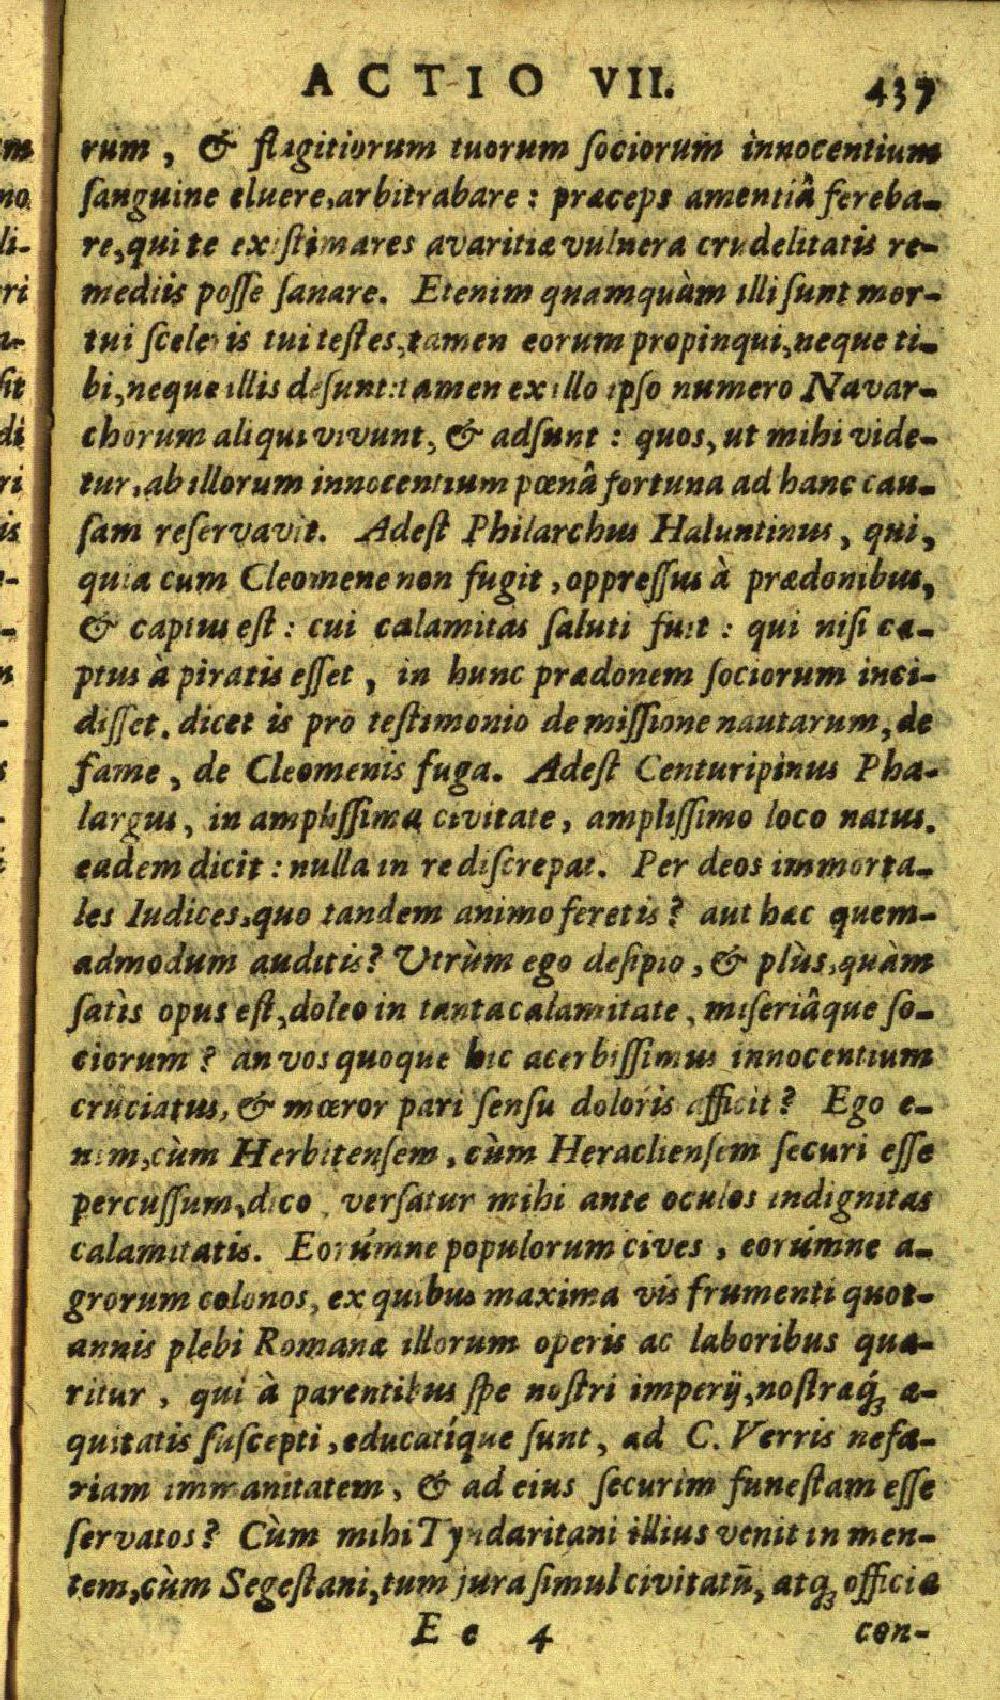 ACTIO VII. 437
rum, & flagitiorum tuorum ſociorum innocentium
ſanguine eluere, arbitrabare: præceps amentiâ fereba-
re, qui te exiſtimares avaritiæ vulnera crudelitatis re-
mediis poſſe ſanare. Etenim quamquàm illi ſunt mor-
tui ſceleris tui teſtes, tamen eorum propinqui, neque ti-
bi, neque illis deſunt: tamen ex illo ipſo numero Navar-
chorum aliqui vivunt, & adſunt: quos, ut mihi vide-
tur, ab illorum innocentium pœnâ fortuna ad hanc cau-
ſam reſervavit. Adeſt Philarchus Haluntinus, qui,
quia cum Cleomene non fugit, oppreſſus à prædonibus,
& captus eſt: cui calamitas ſaluti fuit: qui niſi ca-
ptus à piratis eſſet, in hunc prædonem ſociorum inci-
diſſet. dicet is pro teſtimonio de miſſione nautarum, de
fame, de Cleomenis fuga. Adeſt Centuripinus Pha-
largus, in ampliſſima civitate, ampliſſimo loco natus.
eadem dicit: nulla in re diſcrepat. Per deos immorta-
les Iudices, quo tandem animo feretis? aut hæc quem-
admodum auditis? Utrùm ego deſipio, & plùs, quàm
ſatìs opus eſt, doleo in tanta calamitate, miſeriâque ſo-
ciorum? an vos quoque hic acerbiſſimus innocentium
cruciatus, & mœror pari ſenſu doloris afficit? Ego e-
nim, cùm Herbitenſem, cùm Heraclienſem ſecuri eſſe
percuſſum, dico, verſatur mihi ante oculos indignitas
calamitatis. Eorúmne populorum cives, eorúmne a-
grorum colonos, ex quibus maxima vis frumenti quot-
annis plebi Romanæ illorum operis ac laboribus quæ-
ritur, qui à parentibus ſpe noſtri imperij, noſtræq́; æ-
quitatis ſuſcepti, educatíque ſunt, ad C. Verris nefa-
riam immanitatem, & ad eius ſecurim funeſtam eſſe
ſervatos? Cùm mihi Tyndaritani illius venit in men-
tem, cùm Segeſtani, tum jura ſimul civitatū, atq; officia
E e 4 con-